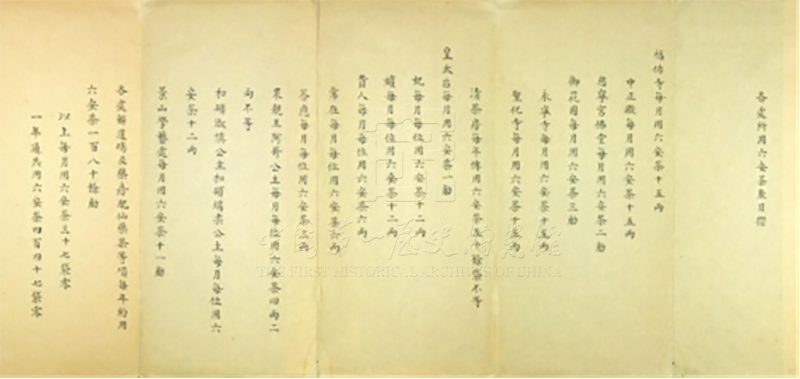 各處所用六安茶數目摺
福佑寺每月用六安茶十五兩
中正殿每月用六安茶十五兩
慈寧宮佛堂每月用六安茶二觔
御花園每月用六安茶三觔
永寧寺每月用六安茶十五兩
聖化寺每月用六安茶十五兩
清茶房每年傳用六安茶五十餘袋不等
皇太后每月用六安茶一觔
妃每月每位用六安茶十二兩
嬪每月每位用六安茶十二兩
貴人每月每位用六安茶六兩
常在每月每位用六安茶六兩
答應每月每位用六安茶三兩
果親王阿哥公主每月每位用六安茶四兩二
兩不等
和碩淑慎公主和碩端柔公主每月每位用六
安茶十二兩
景山學藝處每月用六安茶十一觔
各處解渡瑒及藥房配仙藥茶等項每年約用
六安茶一百八十餘觔
以上每月用六安茶三十七袋零
一年通共用六安茶四百四十七袋零
中國第一歷史檔案館
THE FIRST HISTORICAL ARCHIVES OF CHINA